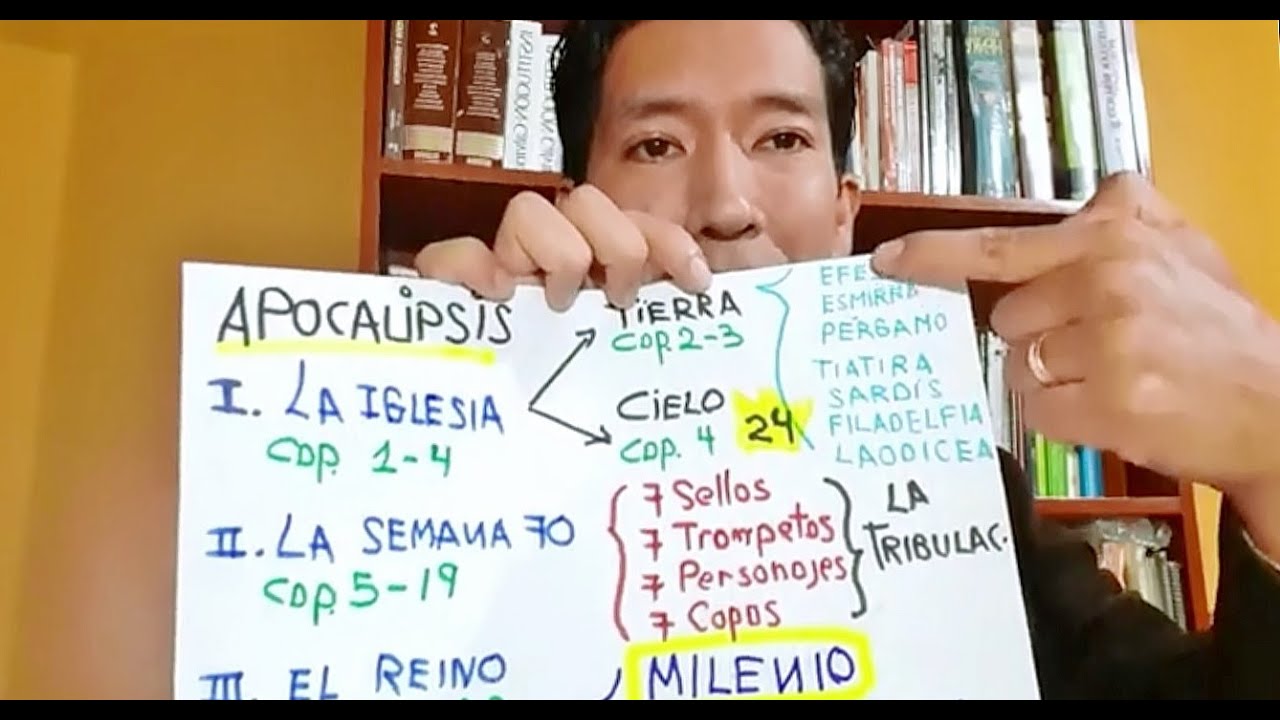 APOCALIPSIS
I. LA IGLESIA
Cap. 1-4
TIERRA
Cap. 2-3
CIELO
Cap. 4
24
ESMIRNA
PÉRGAMO
TIATIRA
SARDÍS
FILADELFIA
LAODICEA
II. LA SEMANA 70
Cap. 5-19
7 Sellos
7 Trompetas
7 Personajes
7 Copas
LA
TRIBULAC.
III. EL REINO
MILENIO